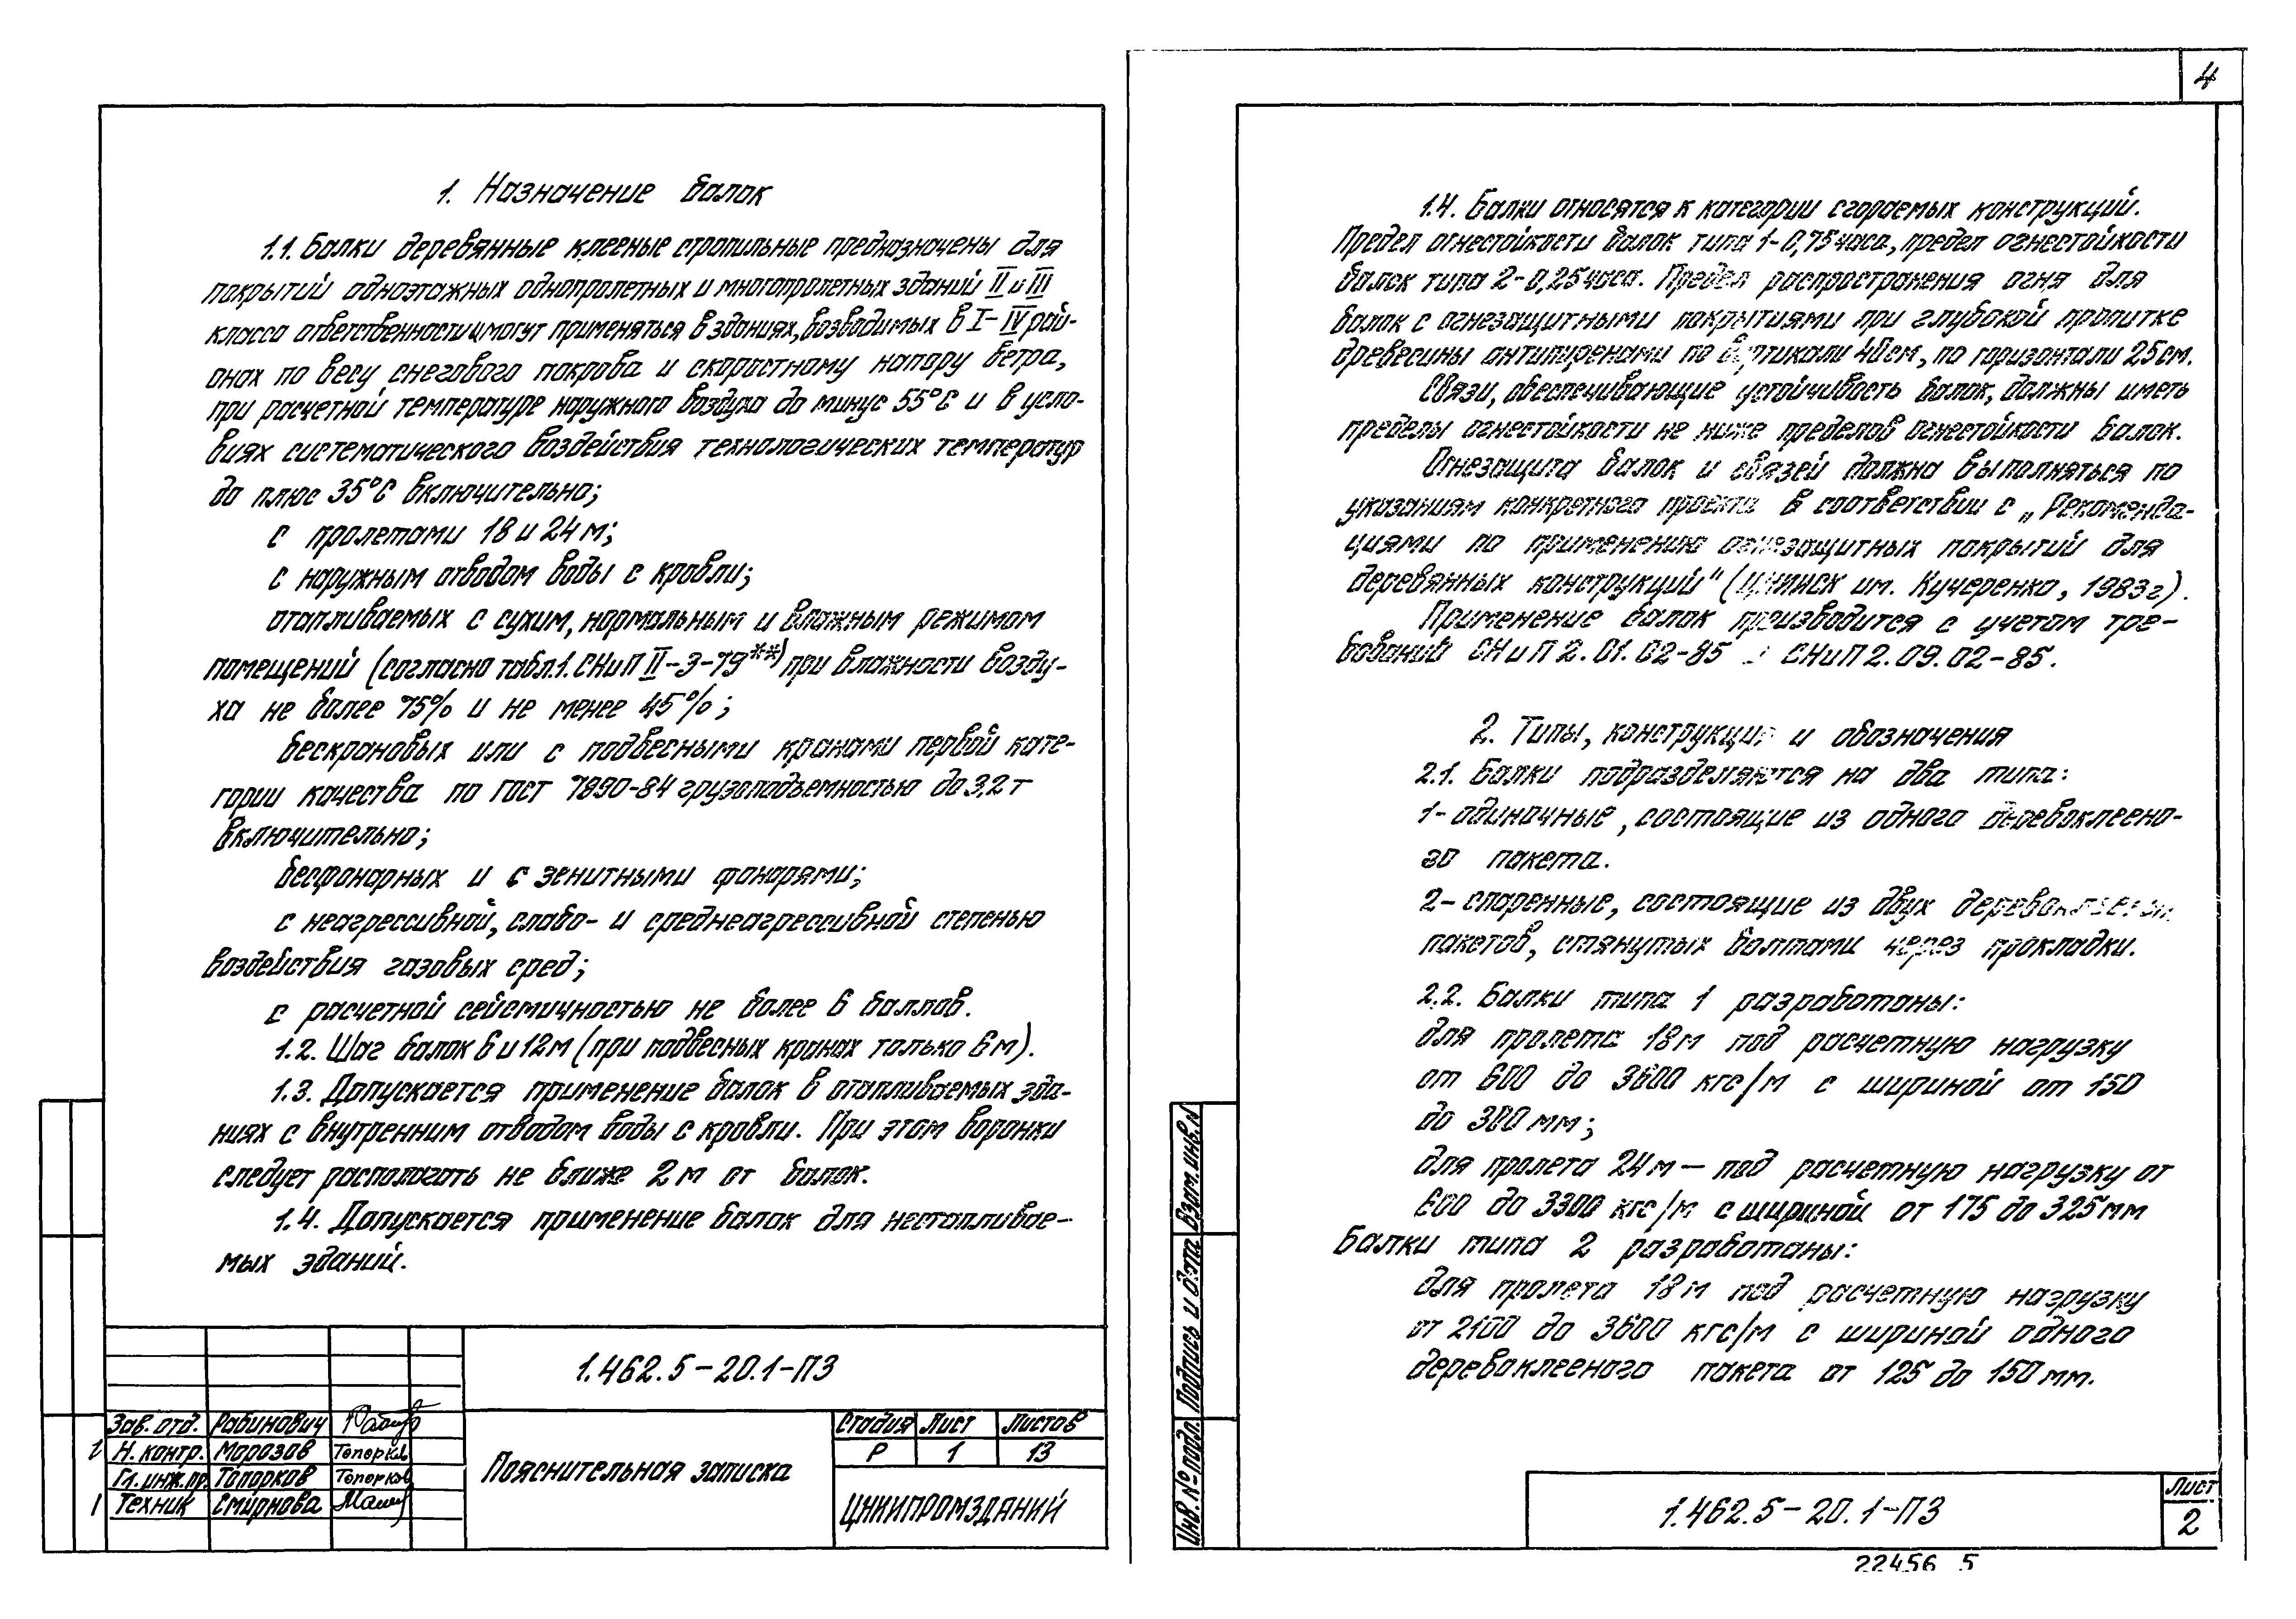 1. Назначение балок
1.1. Балки деревянные клееные стропильные предназначены для
покрытий одноэтажных однопролетных и многопролетных зданий II и III
класса ответственности и могут применяться в зданиях, возводимых в I-IV рай-
онах по весу снегового покрова и скоростному напору ветра,
при расчетной температуре наружного воздуха до минус 55°С и в усло-
виях систематического воздействия технологических температур
до плюс 35°С включительно;
с пролетами 18 и 24 м;
с наружным отводом воды с кровли;
отапливаемых с сухим, нормальным и влажным режимом
помещений (согласно табл.1. СНиП II-3-79**) при влажности возду-
ха не более 75% и не менее 45%;
бескрановых или с подвесными кранами первой кате-
гории качества по ГОСТ 7890-84 грузоподъемностью до 3,2 т
включительно;
бесфонарных и с зенитными фонарями;
с неагрессивной, слабо- и среднеагрессивной степенью
воздействия газовых сред;
с расчетной сейсмичностью не более 6 баллов.
1.2. Шаг балок 6 и 12 м (при подвесных кранах только 6 м).
1.3. Допускается применение балок в отапливаемых зда-
ниях с внутренним отводом воды с кровли. При этом воронки
следует располагать не ближе 2 м от балок.
1.4. Допускается применение балок для неотапливае-
мых зданий.
1.462.5-20.1-ПЗ
Зав. отд. Рабинович
Н. контр. Морозов Топорков
Гл. инж. пр. Топорков Топорков
Техник Смирнова
Пояснительная записка
Стадия Лист Листов
Р 1 13
ЦНИИПРОМЗДАНИЙ
4
1.4. Балки относятся к категории сгораемых конструкций.
Предел огнестойкости балок типа 1-0,75 часа, предел огнестойкости
балок типа 2-0,25 часа. Предел распространения огня для
балок с огнезащитными покрытиями при глубокой пропитке
древесины антипиренами по вертикали 40 см, по горизонтали 25 см.
Связи, обеспечивающие устойчивость балок, должны иметь
пределы огнестойкости не ниже пределов огнестойкости балок.
Огнезащита балок и связей должна выполняться по
указаниям конкретного проекта в соответствии с „Рекоменда-
циями по применению огнезащитных покрытий для
деревянных конструкций" (ЦНИИСК им. Кучеренко, 1983 г).
Применение балок производится с учетом тре-
бований СНиП 2.01.02-85 и СНиП 2.09.02-85.
2. Типы, конструкция и обозначения
2.1. Балки подразделяются на два типа:
1- одиночные, состоящие из одного деревоклеено-
го пакета.
2- спаренные, состоящие из двух деревоклееных
пакетов, стянутых болтами через прокладки.
2.2. Балки типа 1 разработаны:
для пролета 18 м под расчетную нагрузку
от 600 до 3600 кгс/м с шириной от 150
до 300 мм;
для пролета 24 м — под расчетную нагрузку от
600 до 3300 кгс/м с шириной от 175 до 325 мм
Балки типа 2 разработаны:
для пролета 18 м под расчетную нагрузку
от 2100 до 3600 кгс/м с шириной одного
деревоклееного пакета от 125 до 150 мм.
Взам. инв. №
Подпись и дата
Инв. № подл.
1.462.5-20.1-ПЗ
Лист
2
22456 5